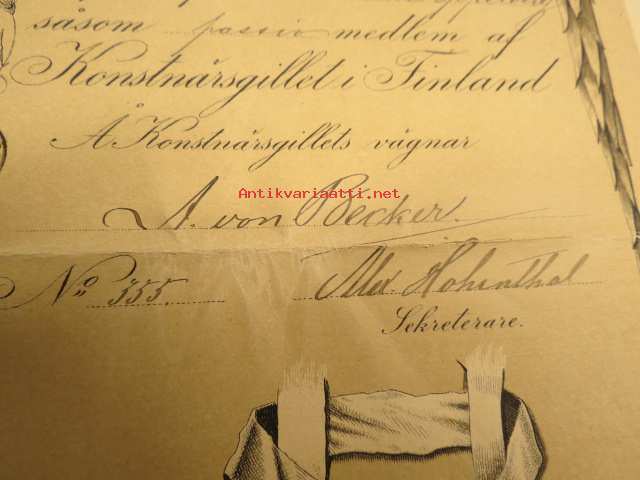 såsom passiv medlem af
Konstnärsgillet i Finland
Å Konstnärsgillets vägnar
Antikvariaatti.net
A. von Becker.
No 355. Alex. Hohenthal
Sekreterare.